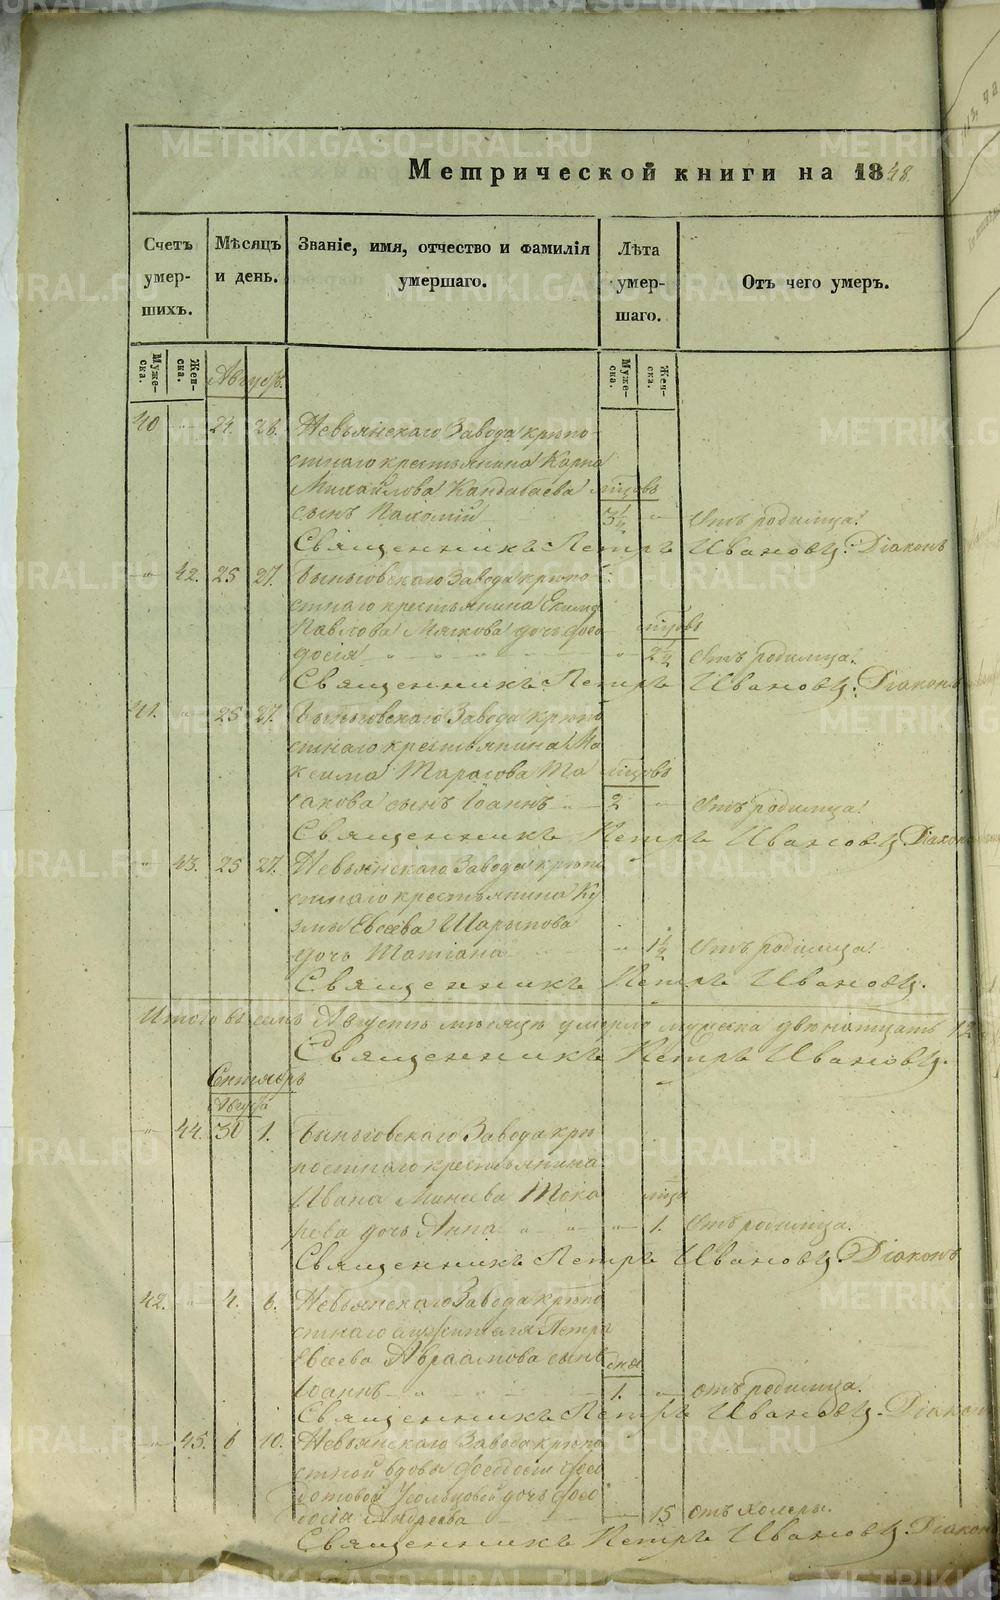 Метрической книги на 1848.
Счетъ умер- шихъ.
Мѣсяцъ и день.
Званіе, имя, отчество и фамилія умершаго.
Лѣта умер- шаго.
Отъ чего умеръ.
Муже- ска. Жен- ска. Августъ. Муже- ска. Жен- ска.
40 " 24. 26. Невьянскаго Завода крѣпо-
стнаго крестьянина Карпа
Михайлова Кандабаева мцовъ
сынъ Пахомій 3½ " Отъ родимца.
Священникъ Петръ Ивановъ. Діаконъ
" 42. 25 27. Быньговскаго Завода крѣпо-
стнаго крестьянина Екима
Павлова Мягкова дочь Ѳео- мцовъ
досія " " " " 2½ Отъ родимца.
Священникъ Петръ Ивановъ. Діаконъ
41. " 25 27. Быньговскаго Завода крѣпо
стнаго крестьянина Ма
ксима Тарасова мцовъ
сынъ Іоаннъ 2 " Отъ родимца.
Священникъ Петръ Ивановъ Діаконъ
" 43. 25 27. Невьянскаго Завода крѣпо
стнаго крестьянина Ку
змы Евсѣева Шарыпова
дочь Татіана " 1½ Отъ родимца.
Священникъ Петръ Ивановъ.
Итого въ семъ Августѣ мѣсяцѣ умерло мужеска двенатцать 12
Священникъ Петръ Ивановъ.
Сентябрь
Августа
" 44. 30 1. Быньговскаго Завода крѣ
постнаго крестьянина
Ивана Минеева Тока мца
рева дочь Анна " " " 1. Отъ родимца.
Священникъ Петръ Ивановъ. Діаконъ
42. " 4. 6. Невьянскаго Завода крѣпо
стнаго Петра
Евсеева Авраамова сынъ дня
Іоаннъ " " 1. " отъ родимца.
Священникъ Петръ Ивановъ. Діаконъ
" 45. 6 10. Невьянскаго Завода крѣпо
стной вдовы Ѳеодосіи Ѳео
дотовой дочь Ѳео
досіа Андреева 15 отъ холеры.
Священникъ Петръ Ивановъ. Діаконъ
METRIKI.GASO-URAL.RU